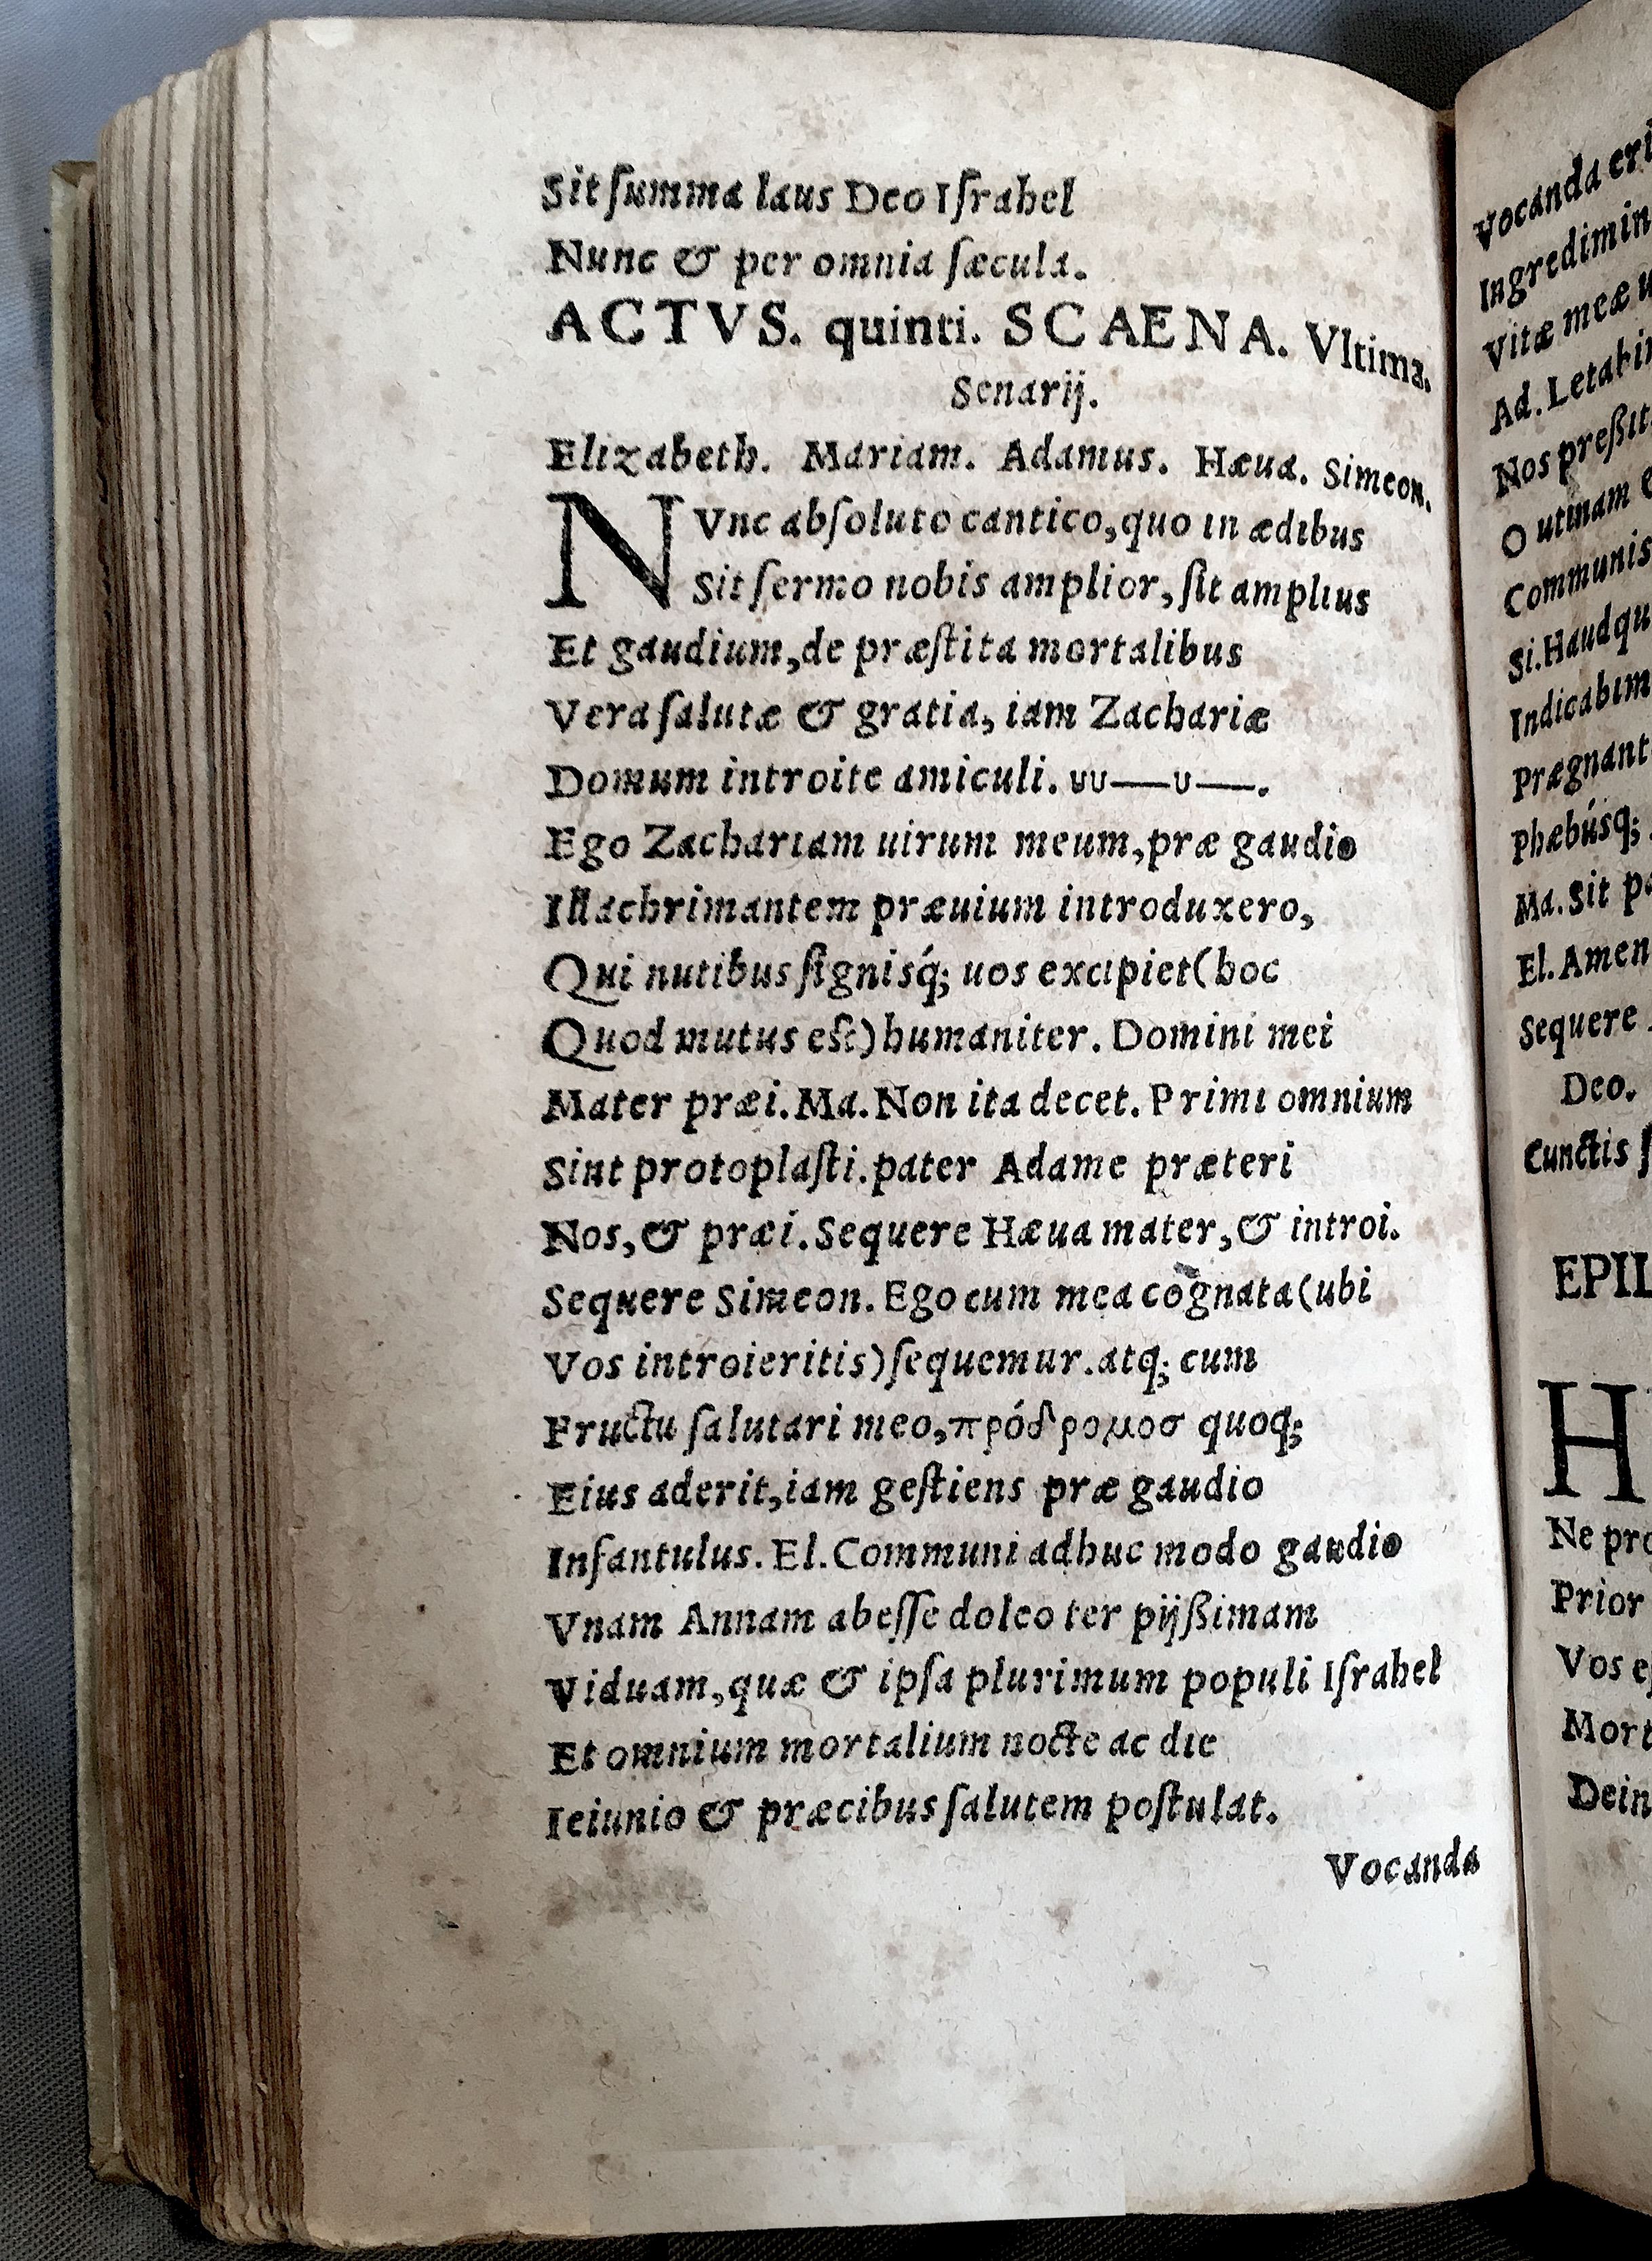 Sit ſumma laus Deo Iſrahel
Nunc & per omnia ſæcula.
ACTVS. quinti. SCAENA. Vltima.
Senarij.
Elizabeth. Mariam. Adamus. Hæua. Simeon.
NVnc abſoluto cantico, quo in ædibus
Sit ſermo nobis amplior, ſit amplius
Et gaudium, de præſtita mortalibus
Vera ſalutæ & gratia, iam Zachariæ
Domum introite amiculi. uu—u—.
Ego Zachariam uirum meum, præ gaudio
Illachrimantem præuium introduxero,
Qui nutibus ſignisq́; uos excipiet (hoc
Quod mutus eſt) humaniter. Domini mei
Mater præi. Ma. Non ita decet. Primi omnium
Sint protoplaſti. pater Adame præteri
Nos, & præi. Sequere Hæua mater, & introi.
Sequere Simeon. Ego cum mea cognata (ubi
Vos introieritis) ſequemur. atq; cum
Fructu ſalutari meo, πρόδρομοσ quoq;
Eius aderit, iam geſtiens præ gaudio
Infantulus. El. Communi adhuc modo gaudio
Vnam Annam abeſſe doleo ter pijßimam
Viduam, quæ & ipſa plurimum populi Iſrahel
Et omnium mortalium nocte ac die
Ieiunio & præcibus ſalutem poſtulat.
Vocanda
Vocanda
Ingredimin
Vitæ meæ
Ad. Letab
Nos preßit
O utinam
Communis
Si. Haudqu
Indicabim
Prægnant
Phæbúsq;
Ma. Sit
El. Amen
Sequere
Deo.
Cunctis
EPIL
H
Ne
Prior
Vos
Mort
Dein